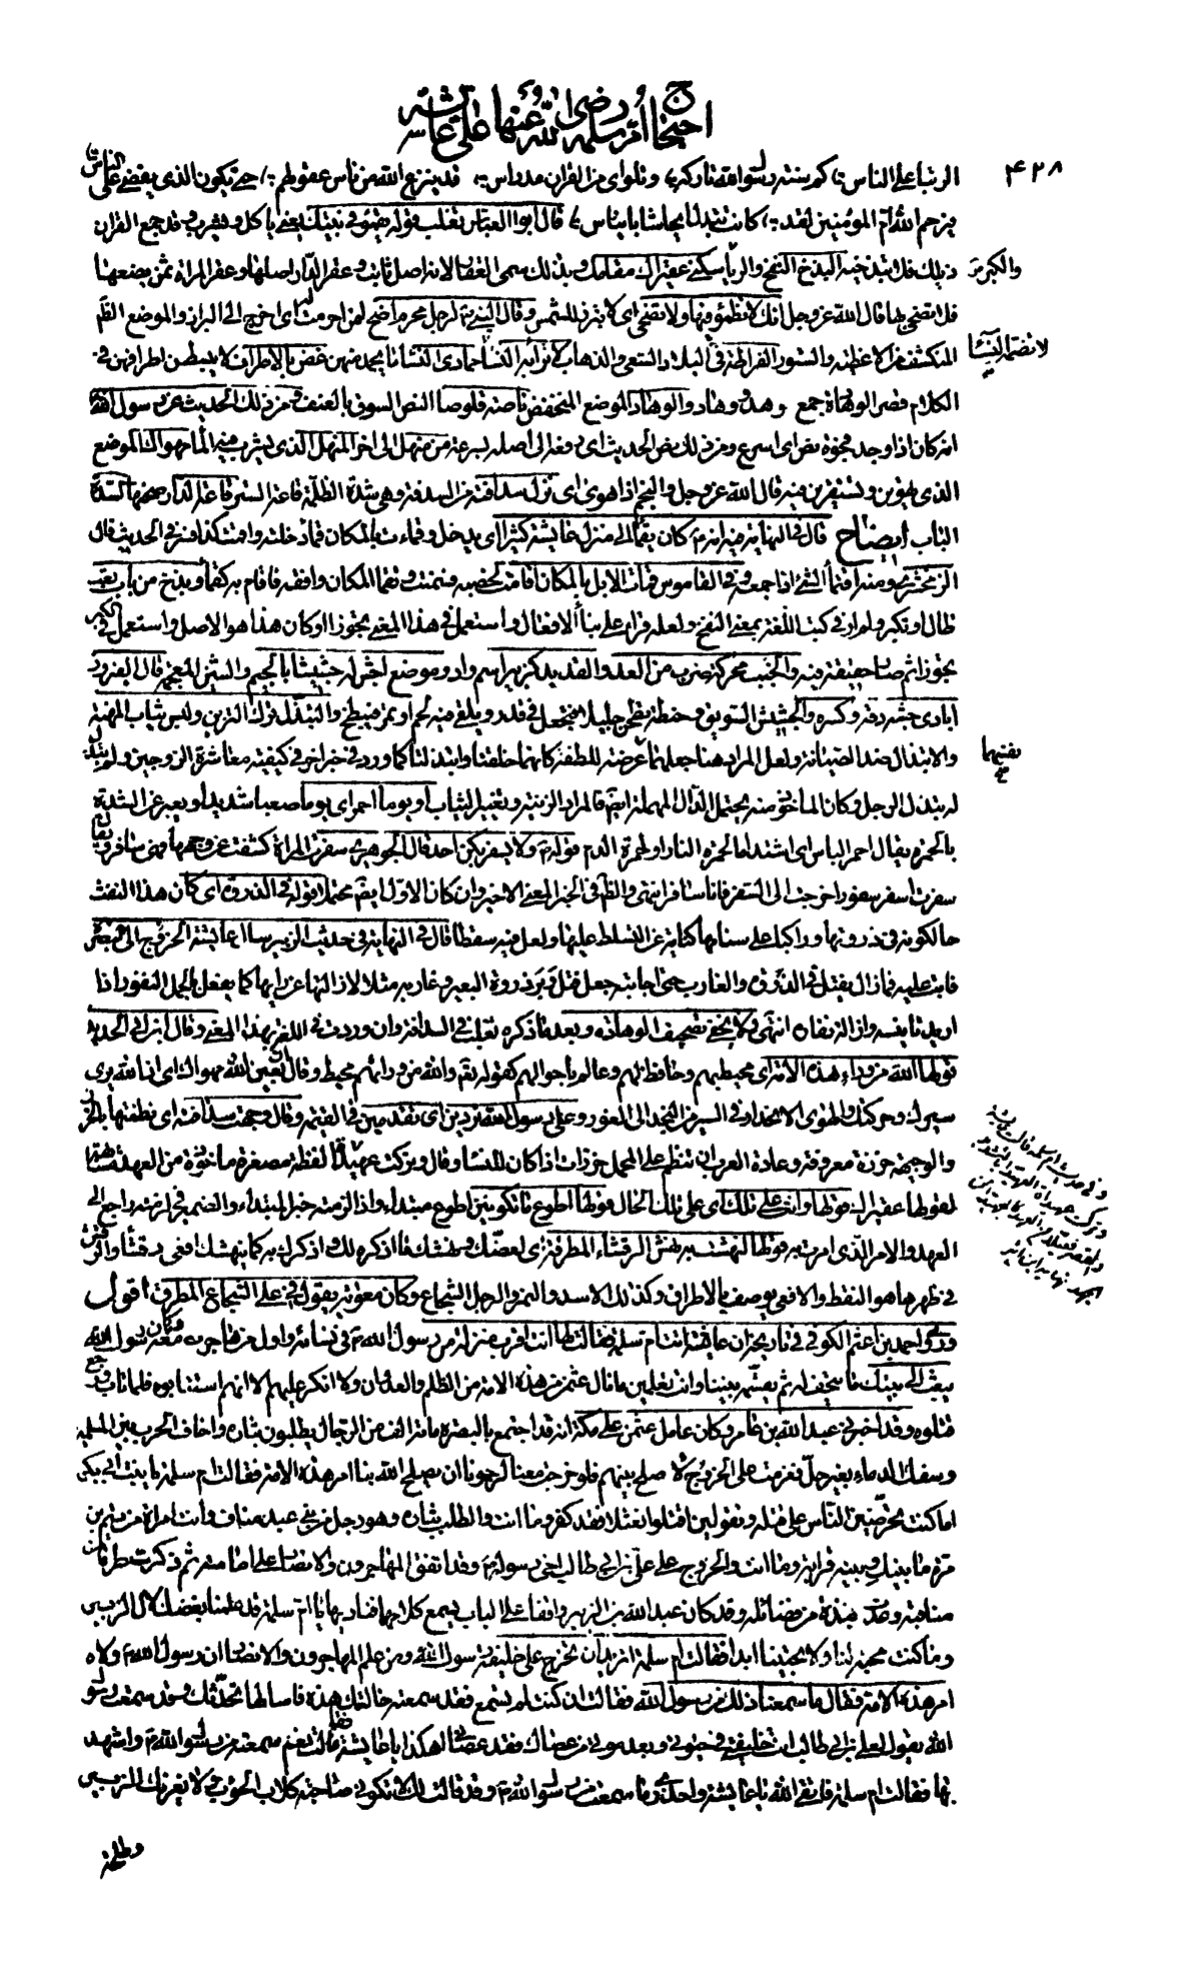 احتجاج ام سلمة رضى الله عنها على عايشة
۴۲۸
الرتبا على الناس كم سنة رسول الله تاركة وتلو اى من القران مدراس قد ينزع الله من ناس عقولهم حتى يكون الذى يقضى على الناس
يرحم الله ام المومنين لقد كانت تبدل ايحاشا بايناس قال ابو العباس ثعلب قوله يقمؤ فى بيتك يعنى ياكل ويشرب وقد جمع القران
ذيلك فلا تبذخيه البذخ النفخ والريا والكبر سكنى عقيراك مقامك وبذلك سمى العقار لانه اصل ثابت وعقر الدار اصلها وعقر المراة ثمن بضعها
فلا تضحى بها قال الله عز وجل انك لا تظمؤ فيها ولا تضحى اى لا تبرز للشمس وقال النبى لرجل محرم اضح لمن احرمت له اى اخرج الى البراز والموضع الظاهر
المنكشف من الاغطية والستور الفراطة فى البلاد السعى والذهاب لا تراب النساء لا تضمه النساء حمادى النساء ما يحمد منهن غض بالاطراف لا يبسطن اطرافهن فى
الكلام قصر الوهازة جمع وهد ووهاد والوهاد الموضع المنخفض ناصة قلوصا النص السوق بالعنف ومن ذلك الحديث عن رسول الله
انه كان اذا وجد فجوة نص اى اسرع ومن ذلك نص الحديث اى رفعه الى اصله بسرعة من منهل الى اخر المنهل الذى يشرب فيه الماء مهواك الموضع
الذى تهوين وتستقرين فيه قال الله عز وجل والنجم اذا هوى اى نزل سدافته من السدفة وهى شدة الظلمة قاعة الستر قاعة الدار صحنها السدة
الباب ايضاح قال فى النهاية فيه انه كان يقمأ الى منزل عايشة كثيرا اى يدخل وقمأت بالمكان قمأ دخلته واقمت كذا فسر فى الحديث قال
الزمخشرى ومنه اقتمأ الشئ اذا جمعه وفى القاموس قمأت الابل بالمكان اقامت لخصبه فسمنت وتقمأ المكان وافقه فاقام به كقمأ وبذخ من باب تعب
طال او تكبر ولم ار فى كتب اللغة بمعنى النفخ ولعله قرأ على بناء الافعال واستعمل فى هذا المعنى تجوزا او كان هذا هو الاصل واستعمل فى الكبر
تجوزا ثم صار حقيقة فيه والخبب محركة ضرب من العدو والفديد كزبير اسم واد وموضع اجش له جشيشا بالجيم والشين المعجمة قال الفيروز
ابادى جشه دقه وكسره والجشيش السويق وحنطة تطحن جليلا فتجعل فى قدر ويلقى فيه لحم او تمر فيطبخ والتبذل ترك التزين ولبس ثياب المهنة
والابتذال ضد الصيانة ولعل المراد هنا جعلهما نفسهما عرضة للطفه كانهما خلقتا وابتذلتا كما ورد فى خبر اخر فى كيفية معاشرة الزوجين ولم تبذل
له تبذل الرجل وكان الماخوذ منه يحتمل الدال المهملة ايض فالمراد الزينة وتغيير الثياب او يوما احمر اى يوما صعبا شديدا ويعبر عن الشدة
بالحمرة يقال احمر الباس اى اشتد اما لحمرة النار او لحمرة الدم قوله ولا يسفر بكن احد قال الجوهرى سفرت المراة كشفت عن وجهها فهى سافر ويقال
سفرت اسفر سفورا خرجت الى السفر فانا سافر انتهى والظاهر فى الخبر المعنى الاخير وان كان الاول ايض محتملا قوله فى الذروة اى كان هذا النفث
حالكونه فى ذروتها وراكبا على سنامها كناية عن التسلط عليها ولعل فيه سقطا قال فى النهاية فى حديث الزبير سال عايشة الخروج الى البصرة
فابت عليه فما زال يفتل فى الذروة والغارب حتى اجابته جعل فتل وبر ذروة البعير وغاربه مثلا لازالتها عن رايها كما يفعل بالجمل النفور اذا
اريد تانيسه وازالة نفاره انتهى ولا يخفى تصحيف الوهازة وبعد ما ذكره ثعلب فى السدافة وان وردت فى اللغة بهذا المعنى وقال ابن ابى الحديد
قولها الله من وراء هذه الامة اى محيط بهم وحافظ لهم وعالم باحوالهم كقوله تعالى والله من ورائهم محيط وقال ان بعين الله مهواك اى ان الله يرى
سيرك وحركتك والهوى الانحدار فى السير من النجد الى الغور وعلى رسول الله تردين اى تقدمين فى القيمة وقال وجهت سدافته اى نظمتها بالخرز
والوجيهة خرزة معروفة وعادة العرب ان تنظم على المحمل خرزات اذا كان للنساء وقال وتركت عهيداه لفظة مصغرة ماخوذة من العهد مشابهة
لقولها عقيراك قولها وانت على تلك اى على تلك الحال قولها اطوع ما تكونين اطوع مبتدا واذا لزمته خبر المبتدا والضمير فى لزمته راجع الى
العهد والامر الذى امرت به قولها لنهشت به نهش الرقشاء المطرقة اى لعضك ونهشك ما اذكره لك واذكرك به كما ينهشك افعى رقشاء والرقش
فى ظهرها هو النقط والافعى يوصف بالاطراق وكذلك الاسد والنمر والرجل الشجاع وكان معوية يقول فى على الشجاع المطرق اقول
وروى احمد بن اعثم الكوفى فى تاريخه ان عايشة اتت ام سلمة فقالت لها انت اقرب منزلة من رسول الله فى نسائه واول من هاجر معه وكان رسول الله
يبعث الى بيتك ما يتحف له ثم يقسمه بيننا وانت تعلمين ما نال عثمن من هذه الامة من الظلم والعدوان ولا انكر عليهم الا انهم استتابوه فلما تاب ورجع
قتلوه وقد اخبرنى عبد الله بن عامر وكان عامل عثمن على مكة انه قد اجتمع بالبصرة مائة الف من الرجال يطلبون بثاره واخاف الحرب بين المسلمين
وسفك الدماء بغير حل فعزمت على الخروج لاصلح بينهم فلو خرجت معنا لرجونا ان يصلح الله بنا امر هذه الامة فقالت ام سلمة يا بنت ابى بكر
اما كنت تحرضين الناس على قتله وتقولين اقتلوا نعثلا فقد كفر وما انت والطلب بثاره وهو رجل من بنى عبد مناف وانت امراة من تيم بن
مرة ما بينك وبينه قرابة وما انت والخروج على على بن ابى طالب اخى رسول الله وقد اتفق المهاجرون والانصار على امامته ثم ذكرت طرفا من
مناقبه وعدت نبذة من فضائله وقد كان عبد الله بن الزبير واقفا على الباب يسمع كلامها فناداها يا ام سلمة قد علمنا بغضك لال الزبير
وما كنت محبة لنا ولا تحبينا ابدا فقالت ام سلمة اتريد ان نخرج على خليفة رسول الله ومن علم المهاجرون والانصار ان رسول الله ولاه
امر هذه الامة فقال ما سمعنا ذلك من رسول الله فقالت ان كنت لم تسمع فقد سمعته خالتك هذه فاسالها تحدثك وقد سمعت رسول
الله يقول لعلى بن ابى طالب انت خليفتى فى حيوتى وبعد موتى من عصاك فقد عصانى اهكذا يا عايشة فقالت نعم سمعته من رسول الله واشهد
بها فقالت ام سلمة فاتقى الله يا عايشة واحذرى ما سمعت من رسول الله وقد قال لك لا تكونى صاحبة كلاب الحوئب ولا يغرنك الزبير
وطلحة